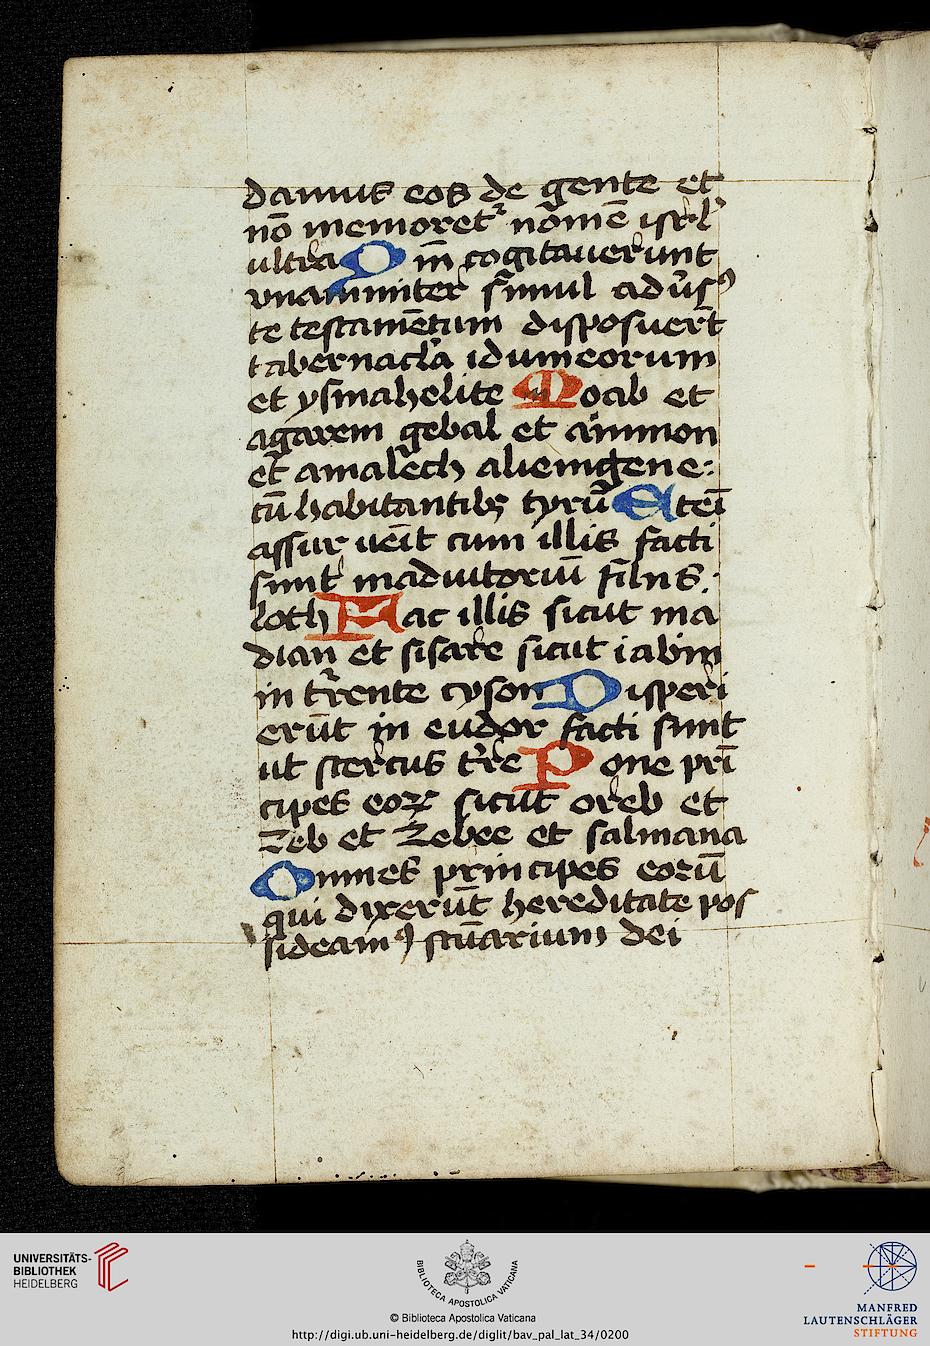 damus eos de gente et
nō memoretᷣ nomē isrl̕
ultra Qm̄ cogitaverunt
vnanimiter simul adūsꝰ
te testamētum disposuert̄
tabernacl̕a idumeorum
et ysmahelite Moab et
agareni gebal et ammon
et amalech alienigene:
cū habitantibꝫ tyrū Eteī
assur ueīt cum illis facti
sunt in adiutoriū filiis.
loth Fac illis sicut ma
dian et sisare sicut iabin
in tr̄rente cyson Disperi
erūt in eudor facti sunt
ut stercus tr̄re Pone prī
cipes eoꝝ sicut oreb et
zeb et zebee et salmana
Omnes principes eorū
qui dixerūt hereditate pos
sideamꝰ scūarium dei
UNIVERSITÄTS-
BIBLIOTHEK
HEIDELBERG
BIBLIOTECA APOSTOLICA VATICANA
© Biblioteca Apostolica Vaticana
http://digi.ub.uni-heidelberg.de/diglit/bav_pal_lat_34/0200
MANFRED
LAUTENSCHLÄGER
STIFTUNG